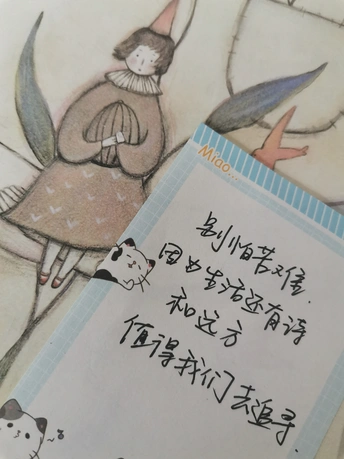 Miao...
别怕苦难.
因为生活还有诗
和远方
值得我们去追寻.